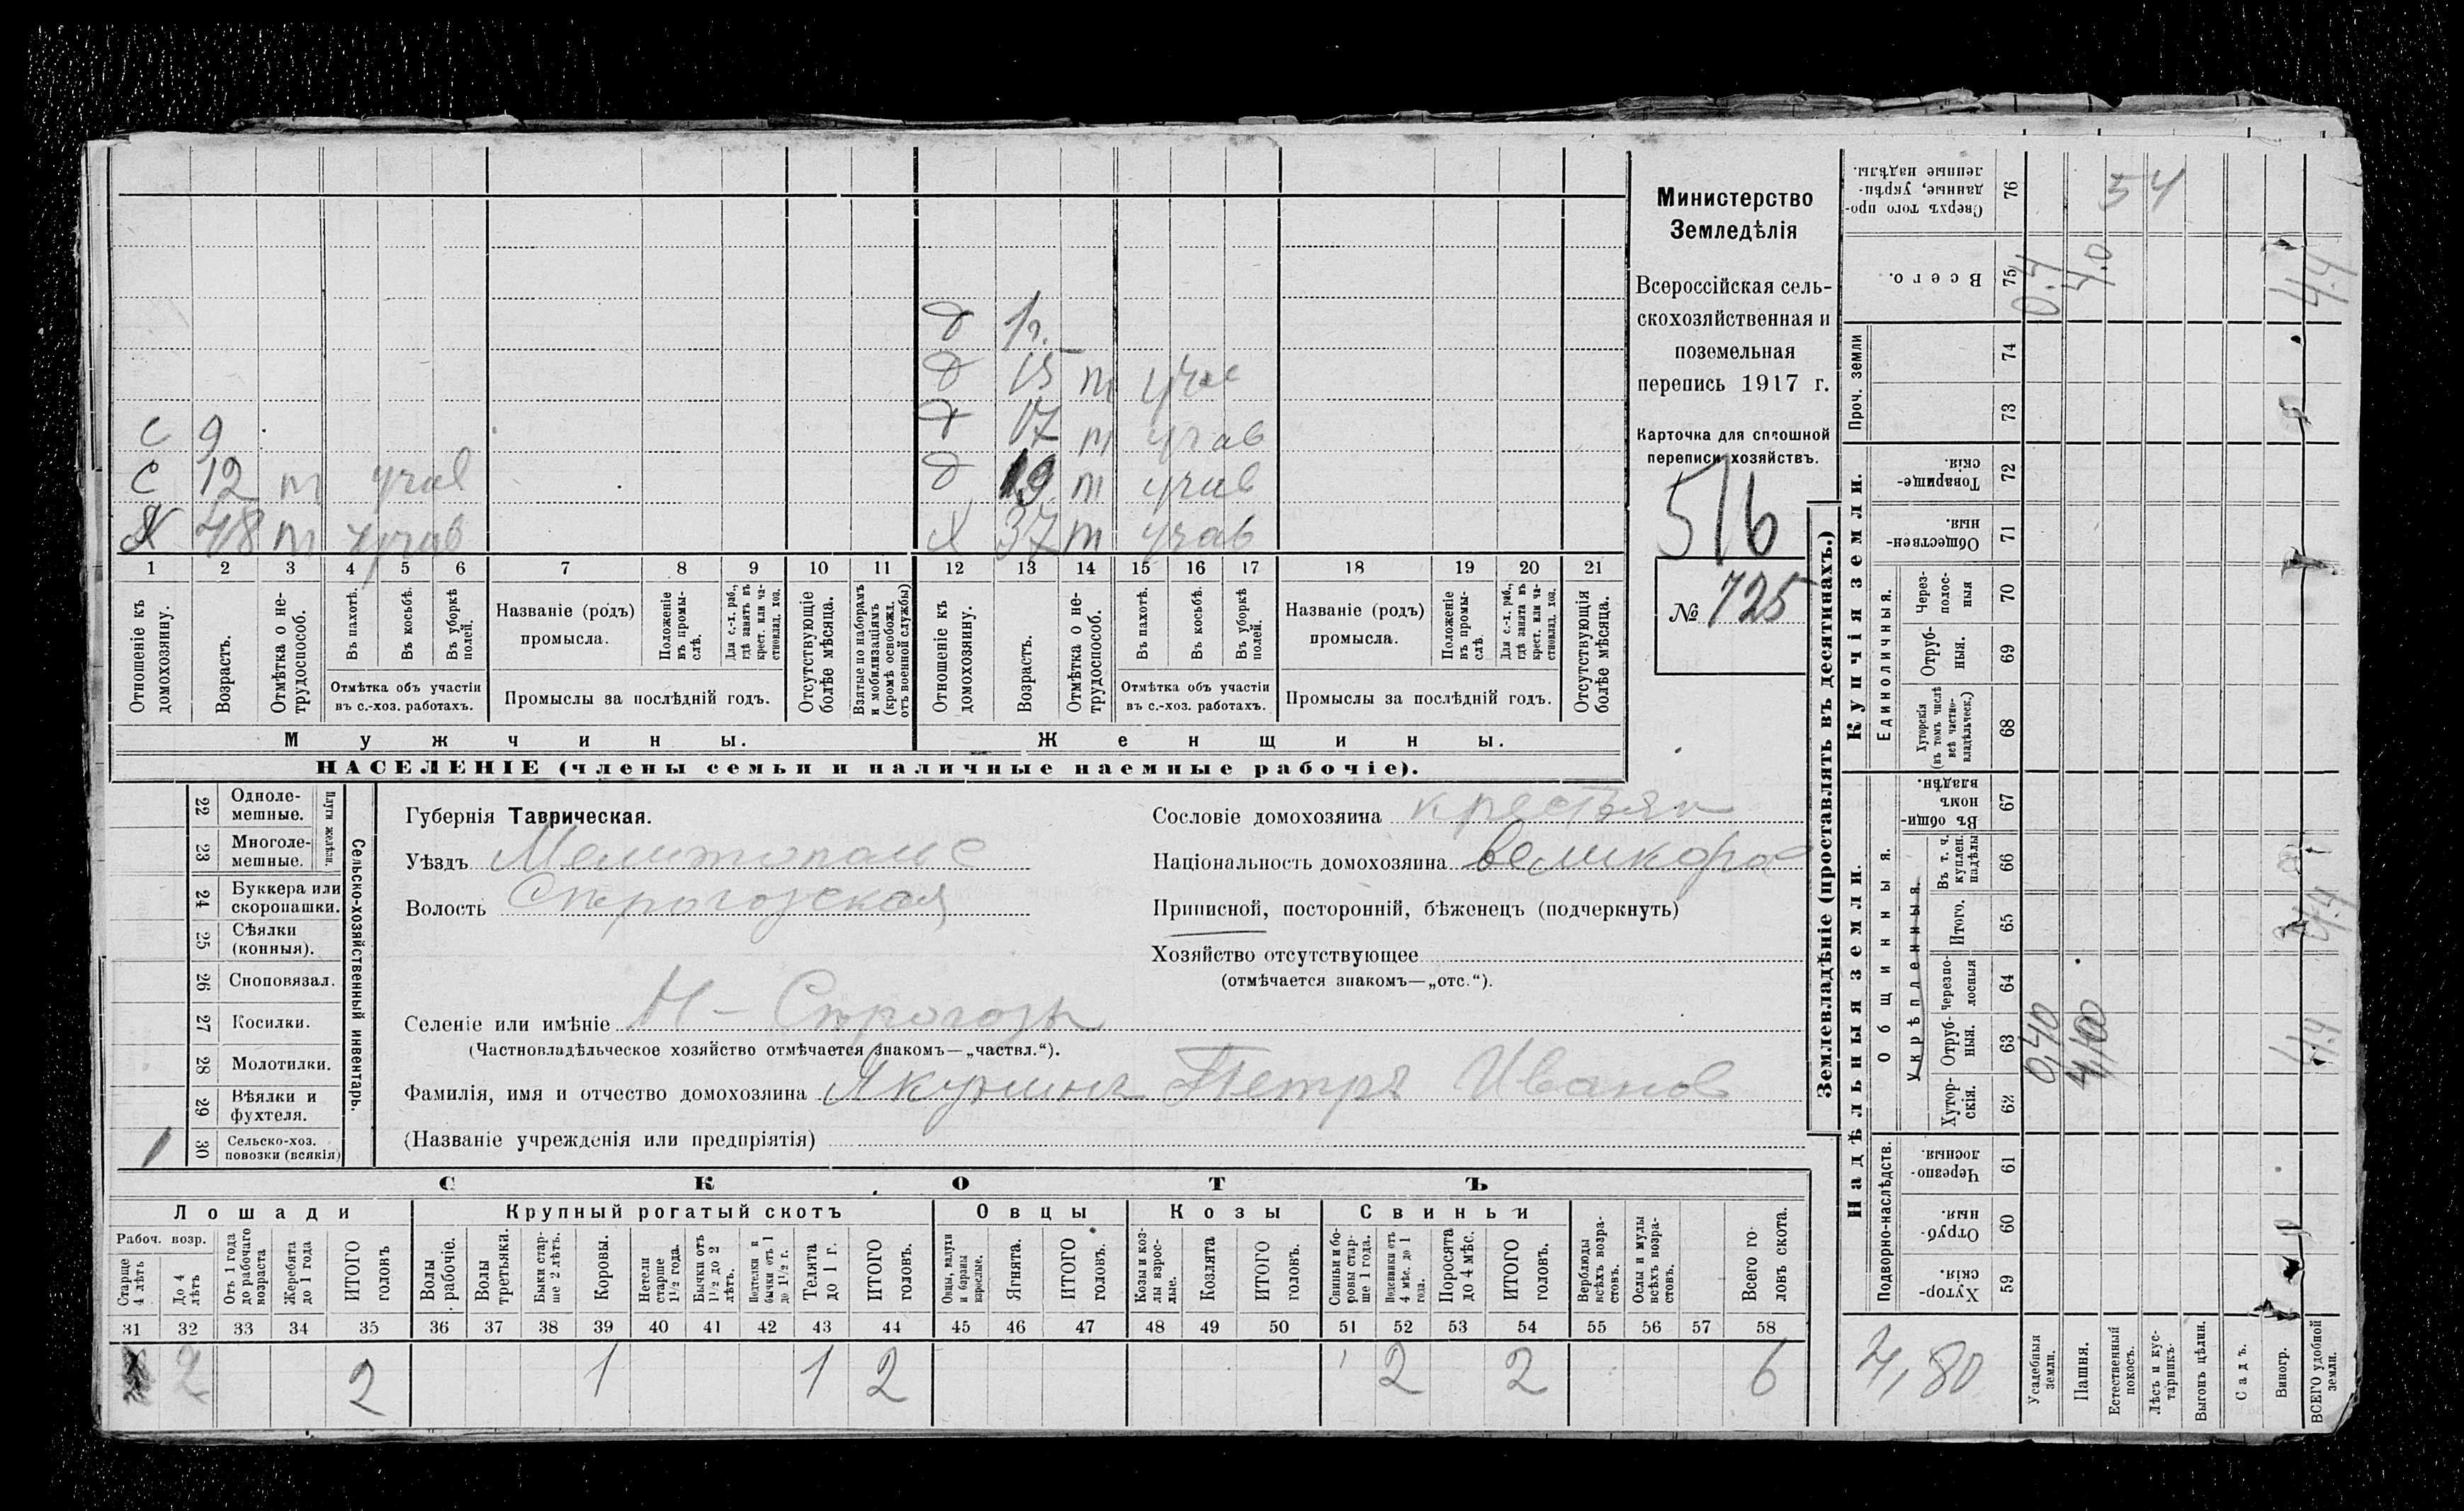 д 1г.
д 15 т учас
д 17 т учав
д 19 т учав
х 37 т учав
с 9
с 12 т учав
х 48 т учав
1 2 3 4 5 6 7 8 9 10 11 12 13 14 15 16 17 18 19 20 21
Отношеніе къ домохозяину.
Возрастъ.
Отмѣтка о не-трудоспособ.
Въ пахотѣ.
Въ косьбѣ.
Въ уборкѣ полей.
Отмѣтка объ участіи въ с.-хоз. работахъ.
Названіе (родъ) промысла.
Положеніе въ промы-слѣ.
Для с.-х. раб., гдѣ занятъ въ крест. или ча-стновлад. хоз.
Промыслы за послѣдній годъ.
Отсутствующіе болѣе мѣсяца.
Взятые по наборамъ и мобилизаціямъ (кромѣ освобожд. отъ военной службы)
Отношеніе къ домохозяину.
Возрастъ.
Отмѣтка о не-трудоспособ.
Въ пахотѣ.
Въ косьбѣ.
Въ уборкѣ полей.
Отмѣтка объ участіи въ с.-хоз. работахъ.
Названіе (родъ) промысла.
Положеніе въ промы-слѣ.
Для с.-х. раб., гдѣ занята въ крест. или ча-стновлад. хоз.
Промыслы за послѣдній годъ.
Отсутствующія болѣе мѣсяца.
Мужчины.
Женщины.
НАСЕЛЕНІЕ (члены семьи и наличные наемные рабочіе).
Министерство
Земледѣлія
Всероссійская сель-
скохозяйственная и
поземельная
перепись 1917 г.
Карточка для сплошной
переписи хозяйствъ.
516
№ 725
22 Одноле-мешные.
23 Многоле-мешные.
Плуги желѣзн.
24 Буккера или скоропашки.
25 Сѣялки (конныя).
26 Сноповязал.
27 Косилки.
28 Молотилки.
29 Вѣялки и фухтеля.
1 30 Сельско-хоз. повозки (всякія)
Сельско-хозяйственный инвентарь.
Губернія Таврическая.
Уѣздъ Мелитопольс
Волость Строгозская
Селеніе или имѣніе Н-Строгозы
(Частновладѣльческое хозяйство отмѣчается знакомъ—„частвл.“).
Фамилія, имя и отчество домохозяина Якунинъ Петръ Иванов
(Названіе учрежденія или предпріятія)
Сословіе домохозяина крестьян
Національность домохозяина великорос
Приписной, посторонній, бѣженецъ (подчеркнуть)
Хозяйство отсутствующее
(отмѣчается знакомъ—„отс.“).
СКОТЪ
Лошади
Крупный рогатый скотъ
Овцы
Козы
Свиньи
Рабоч. возр.
Старше 4 лѣтъ
До 4 лѣтъ
Отъ 1 года до рабочаго возраста
Жеребята до 1 года
ИТОГО головъ
Волы рабочіе.
Волы третьяки.
Быки стар-ше 2 лѣтъ.
Коровы.
Нетели старше 1½ года.
Бычки отъ 1½ до 2 лѣтъ.
бычки отъ 1 до 1½ г.
Телята до 1 г.
ИТОГО головъ.
Овцы, валухи и бараны взрослые.
Ягнята.
ИТОГО головъ.
Козы и коз-лы взрос-лые.
Козлята
ИТОГО головъ.
Свиньи и бо-ровы стар-ше 1 года.
Подсвинки отъ 4 мѣс. до 1 года.
Поросята до 4 мѣс.
ИТОГО головъ.
Верблюды всѣхъ возра-стовъ.
Ослы и мулы всѣхъ возра-стовъ.
Всего го-ловъ скота.
31 32 33 34 35 36 37 38 39 40 41 42 43 44 45 46 47 48 49 50 51 52 53 54 55 56 57 58
2 2 1 1 2 2 2 6
Землевладѣніе (проставлять въ десятинахъ.)
Купчія земли.
Надѣльныя земли.
Сверхъ того про-данные, укрѣп-ленные надѣлы. 76 54
Всего. 75 0.4 4.0 4.4
Проч. земли 74
73
Товарище-скія. 72
Обществен-ныя. 71
Единоличныя.
Через-полос-ныя 70
Отруб-ныя. 69
Хуторскія (въ томъ числѣ всѣ частно-владѣльческ.) 68
Общинныя.
Въ общи-номъ владѣн. 67
Укрѣпленныя.
Въ т. ч. куплен. надѣлы 66
Итого. 65 4.4
Черезпо-лосныя 64
Отруб-ныя. 63 0,40 4,00 4.4
Хутор-скія. 62
Подворно-наслѣдств.
Черезпо-лосныя. 61
Отруб-ныя. 60
Хутор-скія. 59
4,80
Усадебныя земли.
Пашня.
Естественный покосъ.
Лѣсъ и кус-тарникъ.
Выгонъ цѣлин.
Садъ.
Виногр.
ВСЕГО удобной земли.